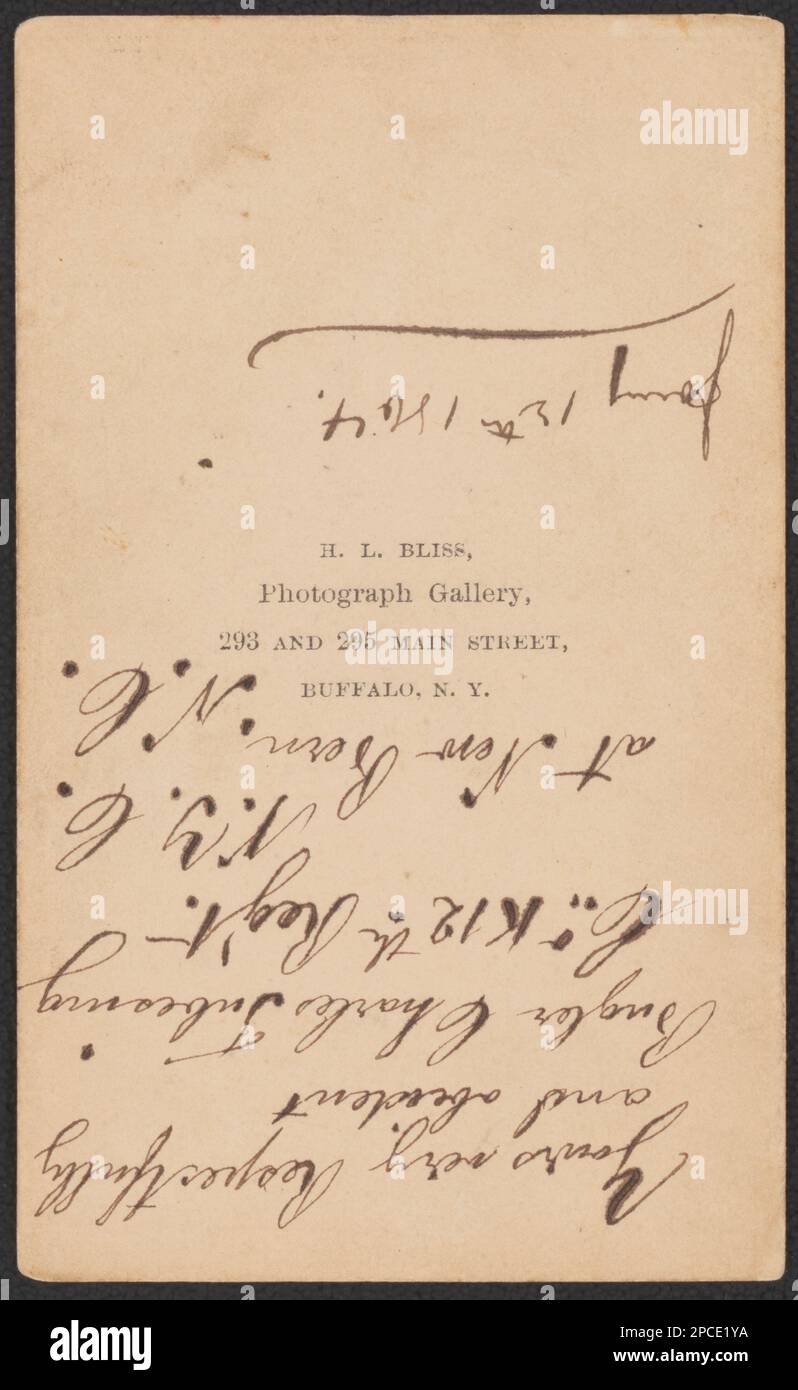 H. L. BLISS,
Photograph Gallery,
293 AND 295 MAIN STREET,
BUFFALO, N. Y.
Yours very Respectfully
and obedent
Bugler Charles Tubesing
Co. K 12th Reg't.
N. Y. C.
at New Bern. N. C.
Jany 12th 1864.
alamy
Image ID: 2PCE1YA
www.alamy.com